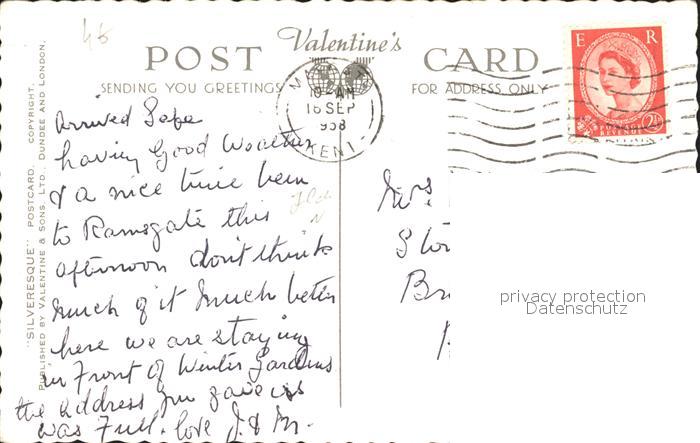 46
Valentine's
POST CARD
SENDING YOU GREETINGS
FOR ADDRESS ONLY
"SILVERESQUE" POSTCARD. COPYRIGHT.
PUBLISHED BY VALENTINE & SONS, LTD., DUNDEE AND LONDON.
E R
POSTAGE
REVENUE
2½
AM
16 SEP
KENT
arrived Safe
having Good Weather
& a nice time been
to Ramsgate this
afternoon don't think
much of it much better
here we are staying
in Front of Winter Gardens
the address you gave us
was Full. love J. & M.
Mrs
Sto
Br
privacy protection
Datenschutz